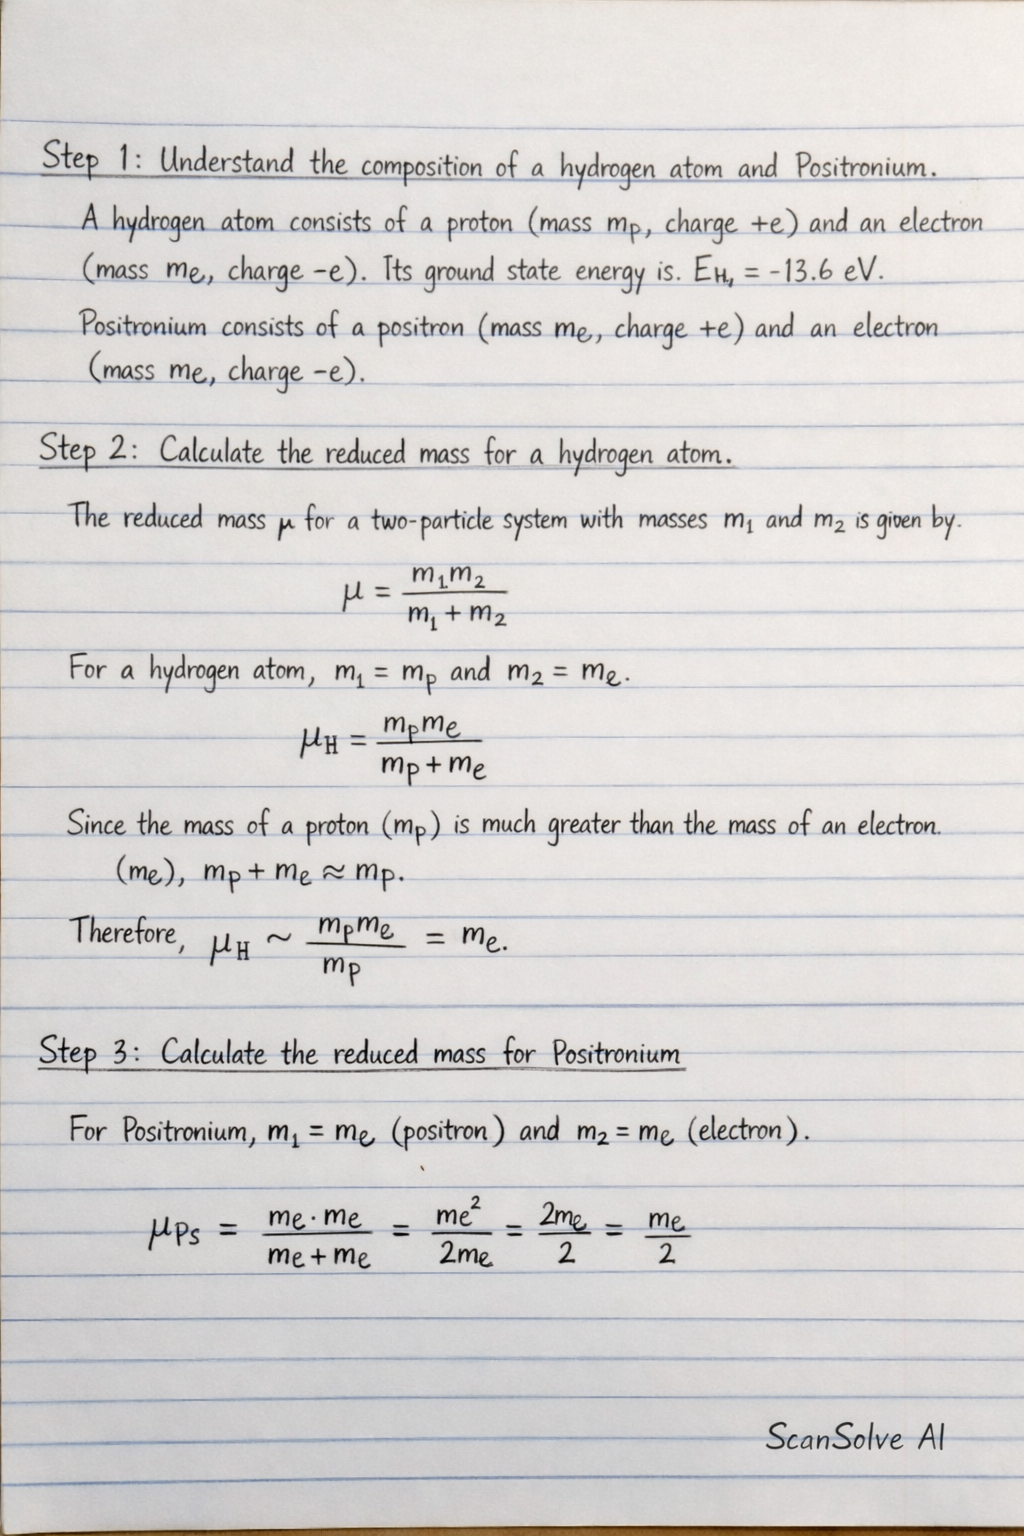 Step 1: Understand the composition of a hydrogen atom and Positronium.
A hydrogen atom consists of a proton (mass mₚ, charge +e) and an electron
(mass mₑ, charge -e). Its ground state energy is. E_H, = -13.6 eV.
Positronium consists of a positron (mass mₑ, charge +e) and an electron
(mass mₑ, charge -e).
Step 2: Calculate the reduced mass for a hydrogen atom.
The reduced mass μ for a two-particle system with masses m₁ and m₂ is given by.
μ = m₁m₂ / m₁ + m₂
For a hydrogen atom, m₁ = mₚ and m₂ = mₑ.
μ_H = mₚmₑ / mₚ + mₑ
Since the mass of a proton (mₚ) is much greater than the mass of an electron.
(mₑ), mₚ + mₑ ≈ mₚ.
Therefore, μ_H ~ mₚmₑ / mₚ = mₑ.
Step 3: Calculate the reduced mass for Positronium
For Positronium, m₁ = mₑ (positron) and m₂ = mₑ (electron).
μ_Ps = mₑ · mₑ / mₑ + mₑ = mₑ² / 2mₑ = 2mₑ / 2 = mₑ / 2
ScanSolve AI